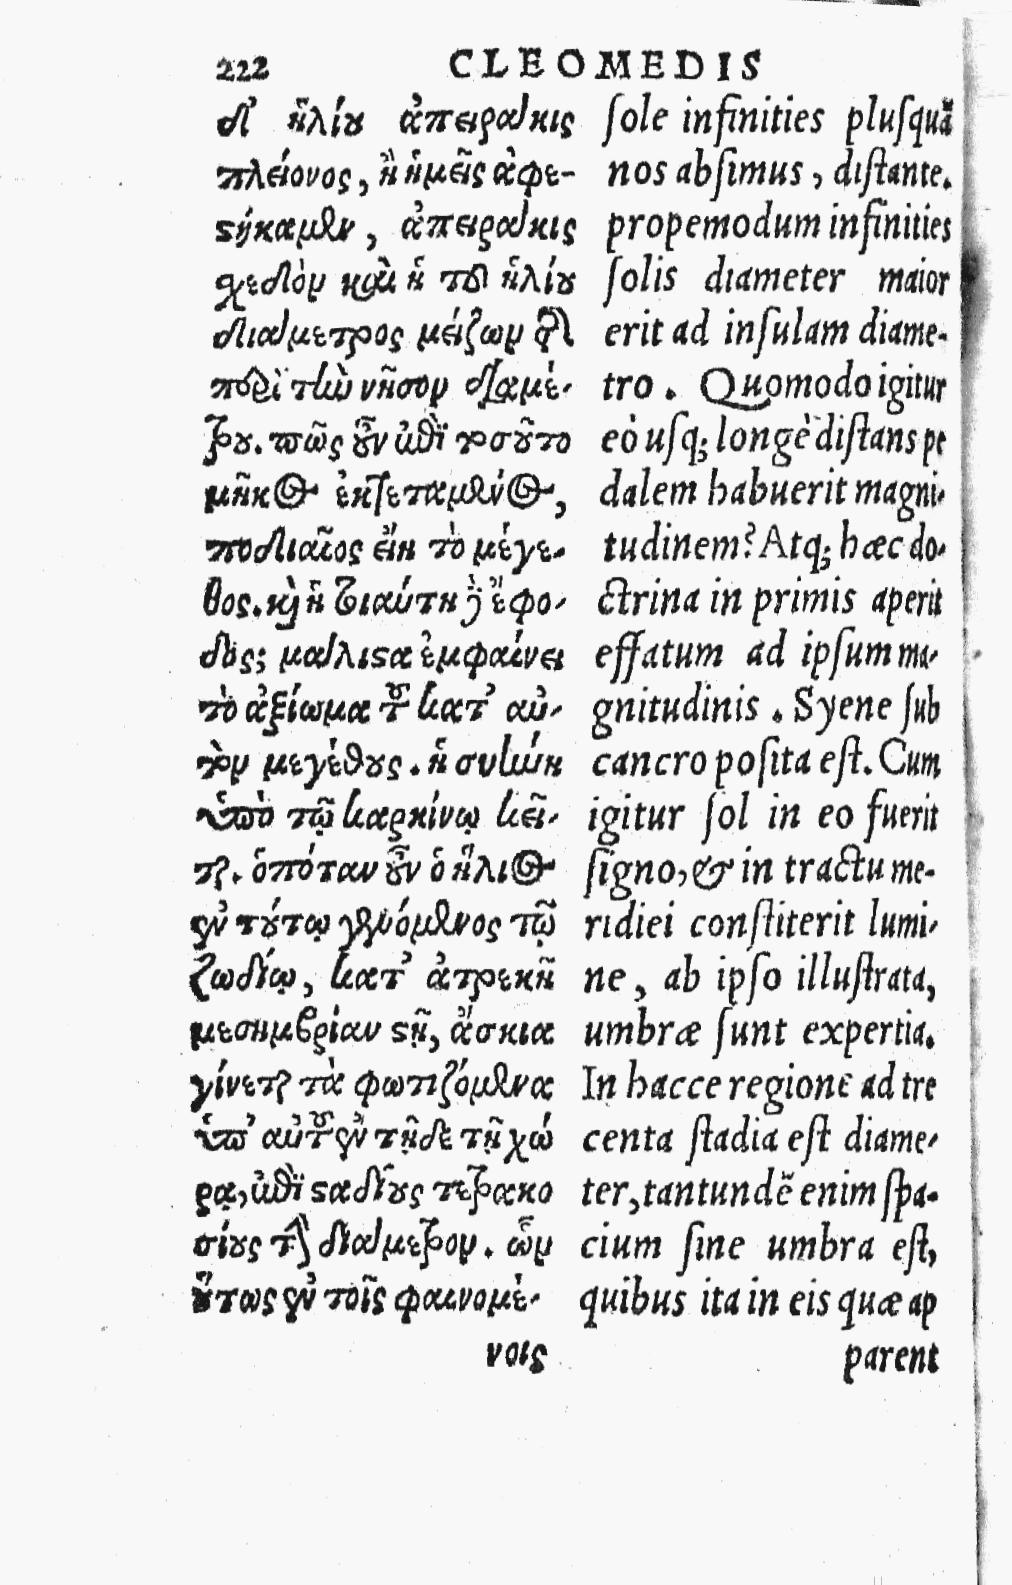 222 CLEOMEDIS
δὲ ἡλίου ἀπειράκις
πλείονος, ἢ ἡμεῖς ἀφε-
στήκαμεν, ἀπειράκις
σχεδὸν καὶ ἡ τοῦ ἡλίου
διάμετρος μείζων ἔσται
παρὰ τὴν νήσου διαμέ-
τρου. πῶς οὖν ἐπὶ τοσοῦτο
μῆκος ἐκτεταμένος,
ποδιαῖος εἴη τὸ μέγε-
θος. καὶ ἡ τοιαύτη δὲ ἔφο-
δος; μάλιστα ἐμφαίνει
τὸ ἀξίωμα τοῦ κατ’ αὐ-
τὸν μεγέθους. ἡ συήνη
ὑπὸ τῷ καρκίνῳ κεῖ-
ται. ὁπόταν οὖν ὁ ἥλιος
ἐν τούτῳ γενόμενος τῷ
ζωδίῳ, κατ’ ἀτρεκῆ
μεσημβρίαν στῇ, ἄσκια
γίνεται τὰ φωτιζόμενα
ὑπ’ αὐτοῦ ἐν τῇδε τῇ χώ
ρᾳ, ἐπὶ σταδίους τετρακο
σίους τὴν διάμετρον. ὧν
οὕτως ἐν τοῖς φαινομέ-
νοις
ſole infinities pluſquã
nos abſimus, diſtante.
propemodum infinities
ſolis diameter maior
erit ad inſulam diame-
tro. Quomodo igitur
eò uſq; longè diſtans pe
dalem habuerit magni-
tudinem? Atq; hæc do-
ctrina in primis aperit
effatum ad ipſum ma-
gnitudinis. Syene ſub
cancro poſita eſt. Cum
igitur ſol in eo fuerit
ſigno, & in tractu me-
ridiei conſtiterit lumi-
ne, ab ipſo illuſtrata,
umbræ ſunt expertia.
In hacce regione ad tre
centa ſtadia eſt diame-
ter, tantundẽ enim ſpa-
cium ſine umbra eſt,
quibus ita in eis quæ ap
parent